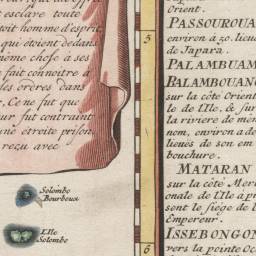 esclave toute
toit homme d'esprit
qui étoient dedans
même chose à ses
fait connoître à
les ordres dans
Ce ne fut que
ur fut contraint
une étroite prison
reçu avec
Solombo
Bourbeux
L'Ile
Solombo
5
6
Orient.
PASSOUROUA
environ a 20. lieu
de Japara.
PALAMBUAM
BALAMBOUANG
sur la côte Orient
le de l'Ile, & sur
la riviere de mêm
nom, environ a d
lieues de son em
bouchure.
MATARAN
sur la côte Meri
onale de l'Ile à pr
sent le siége de l
Empereur.
ISSEBONGON
vers la pointe Oc